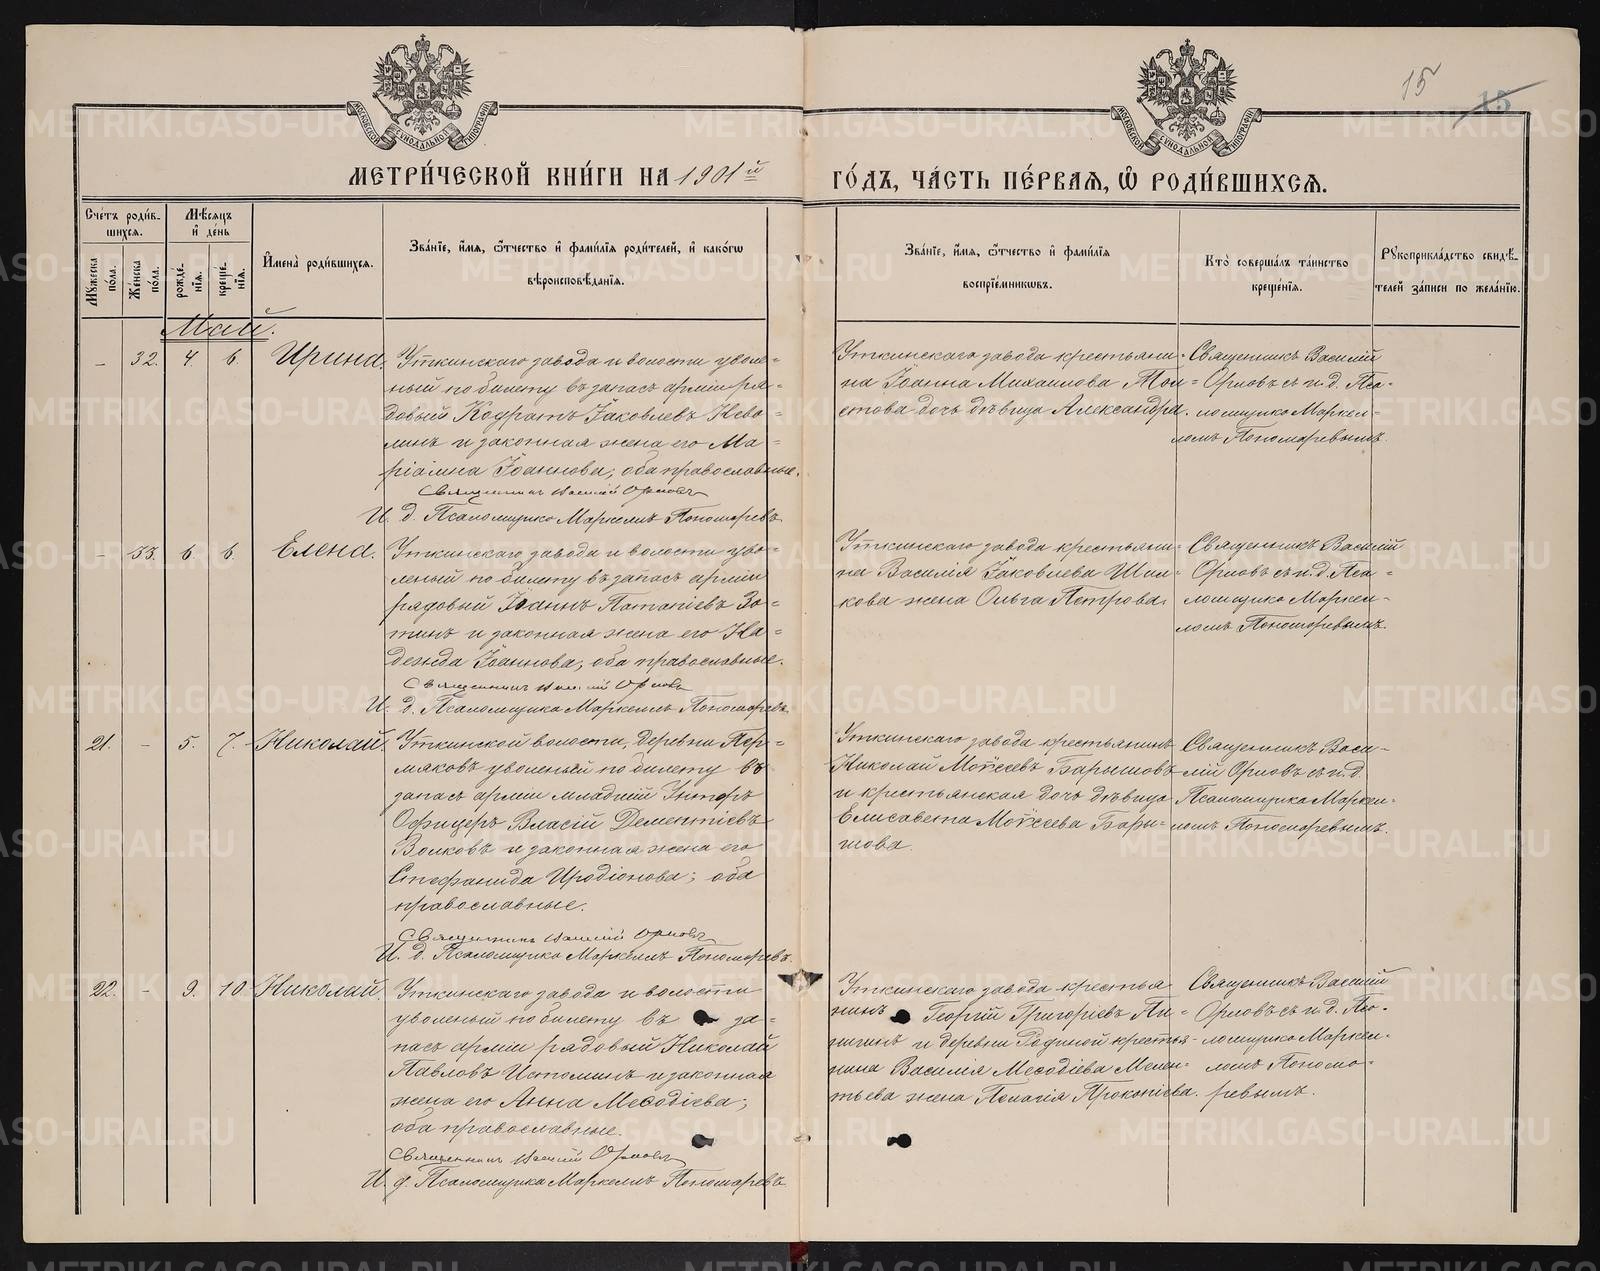 15
15
МЕТРИ́ЧЕСКОЙ КНИ́ГИ НА 1901й ГО́ДЪ, ЧА́СТЬ ПЕ́РВАѦ, Ѽ РОДИ́ВШИХСѦ.
МОСКОВСКОЙ СѴНОДАЛЬНОЙ ТИПОГРАФІИ
МОСКОВСКОЙ СѴНОДАЛЬНОЙ ТИПОГРАФІИ
Сче́тъ роди́в-
шихсѧ.
Мꙋжеска по́ла.
Же́нска по́ла.
Мѣ́сѧцъ и҆ де́нь
рожде́-нїѧ.
креще́-нїѧ.
И҆мена̀ роди́вшихсѧ.
Зва́нїе, и҆́мѧ, ѻ҆́тчество и҆ фами́лїѧ роди́телей, и҆ како́гѡ
вѣроисповѣ́данїѧ.
Зва́нїе, и҆́мѧ, ѻ҆́тчество и҆ фами́лїѧ
воспрїе́мникѡвъ.
Кто̀ соверша́лъ та́инство
креще́нїѧ.
Рꙋкоприкла́дство свидѣ́-
телей за́писи по жела́нїю.
Май.
– 32. 4. 6. Ирина.
Уткинскаго завода и волости уволе=
ный по билету въ запасъ арміи ря=
довый Кодратъ Іаковлевъ Нево=
линъ и законная жена его Ма=
ріамна Іоаннова; оба православные.
Священникъ Василій Орловъ
И. д. Псаломщика Маркеллъ Пономаревъ
Уткинскаго завода крестьяни=
на Іоанна Михаилова
дочь дѣвица Александра.
Священникъ Василій
Орловъ съ и. д. Пса-
ломщика Маркел-
ломъ Пономаревымъ.
– 33. 6. 6. Елена.
Уткинскаго завода и волости уво=
леный по билету въ запасъ арміи
рядовый Іоаннъ Потапіевъ Зо=
тинъ и законная жена его На=
дежда Іоаннова; оба православные.
Священникъ Василій Орловъ
И. д. Псаломщика Маркеллъ Пономаревъ
Уткинскаго завода крестьяни=
на Василія Іаковлева Шил=
кова жена Ольга Петрова.
Священникъ Василій
Орловъ съ и. д. Пса=
ломщика Маркел-
ломъ Пономаревымъ.
21. – 5. 7. Николай.
Уткинской волости, деревни Пер=
мяковъ уволеный по билету въ
запасъ арміи младшій Унтеръ
Офицеръ Власій Дементіевъ
Волковъ и законная жена его
Стефанида Иродіонова; оба
православные.
Священникъ Василій Орловъ
И. д. Псаломщика Маркеллъ Пономаревъ.
Уткинскаго завода крестьянинъ
Николай Моѵсеевъ Барышовъ
и крестьянская дочь дѣвица
Елисавета Моѵсеева Бары=
шова.
Священникъ Васи-
лій Орловъ съ и. д.
Псаломщика Маркел-
ломъ Пономаревымъ.
22. – 9. 10 Николай.
Уткинскаго завода и волости
уволеный по билету въ за=
пасъ арміи рядовый Николай
Павловъ Истоминъ и законная
жена его Анна Меѳодіева;
оба православные.
Священникъ Василій Орловъ
И. д. Псаломщика Маркеллъ Пономаревъ
Уткинскаго завода крестья
нинъ Георгій Григоріевъ Пи=
пигинъ и деревни крестья-
нина Василія Меѳодіева Мелен=
тьева жена Пелагія Прокопіева.
Священникъ Василій
Орловъ съ и. д. Пса-
ломщика Маркел-
ломъ Пономо=
ревымъ.
METRIKI.GASO-URAL.RU